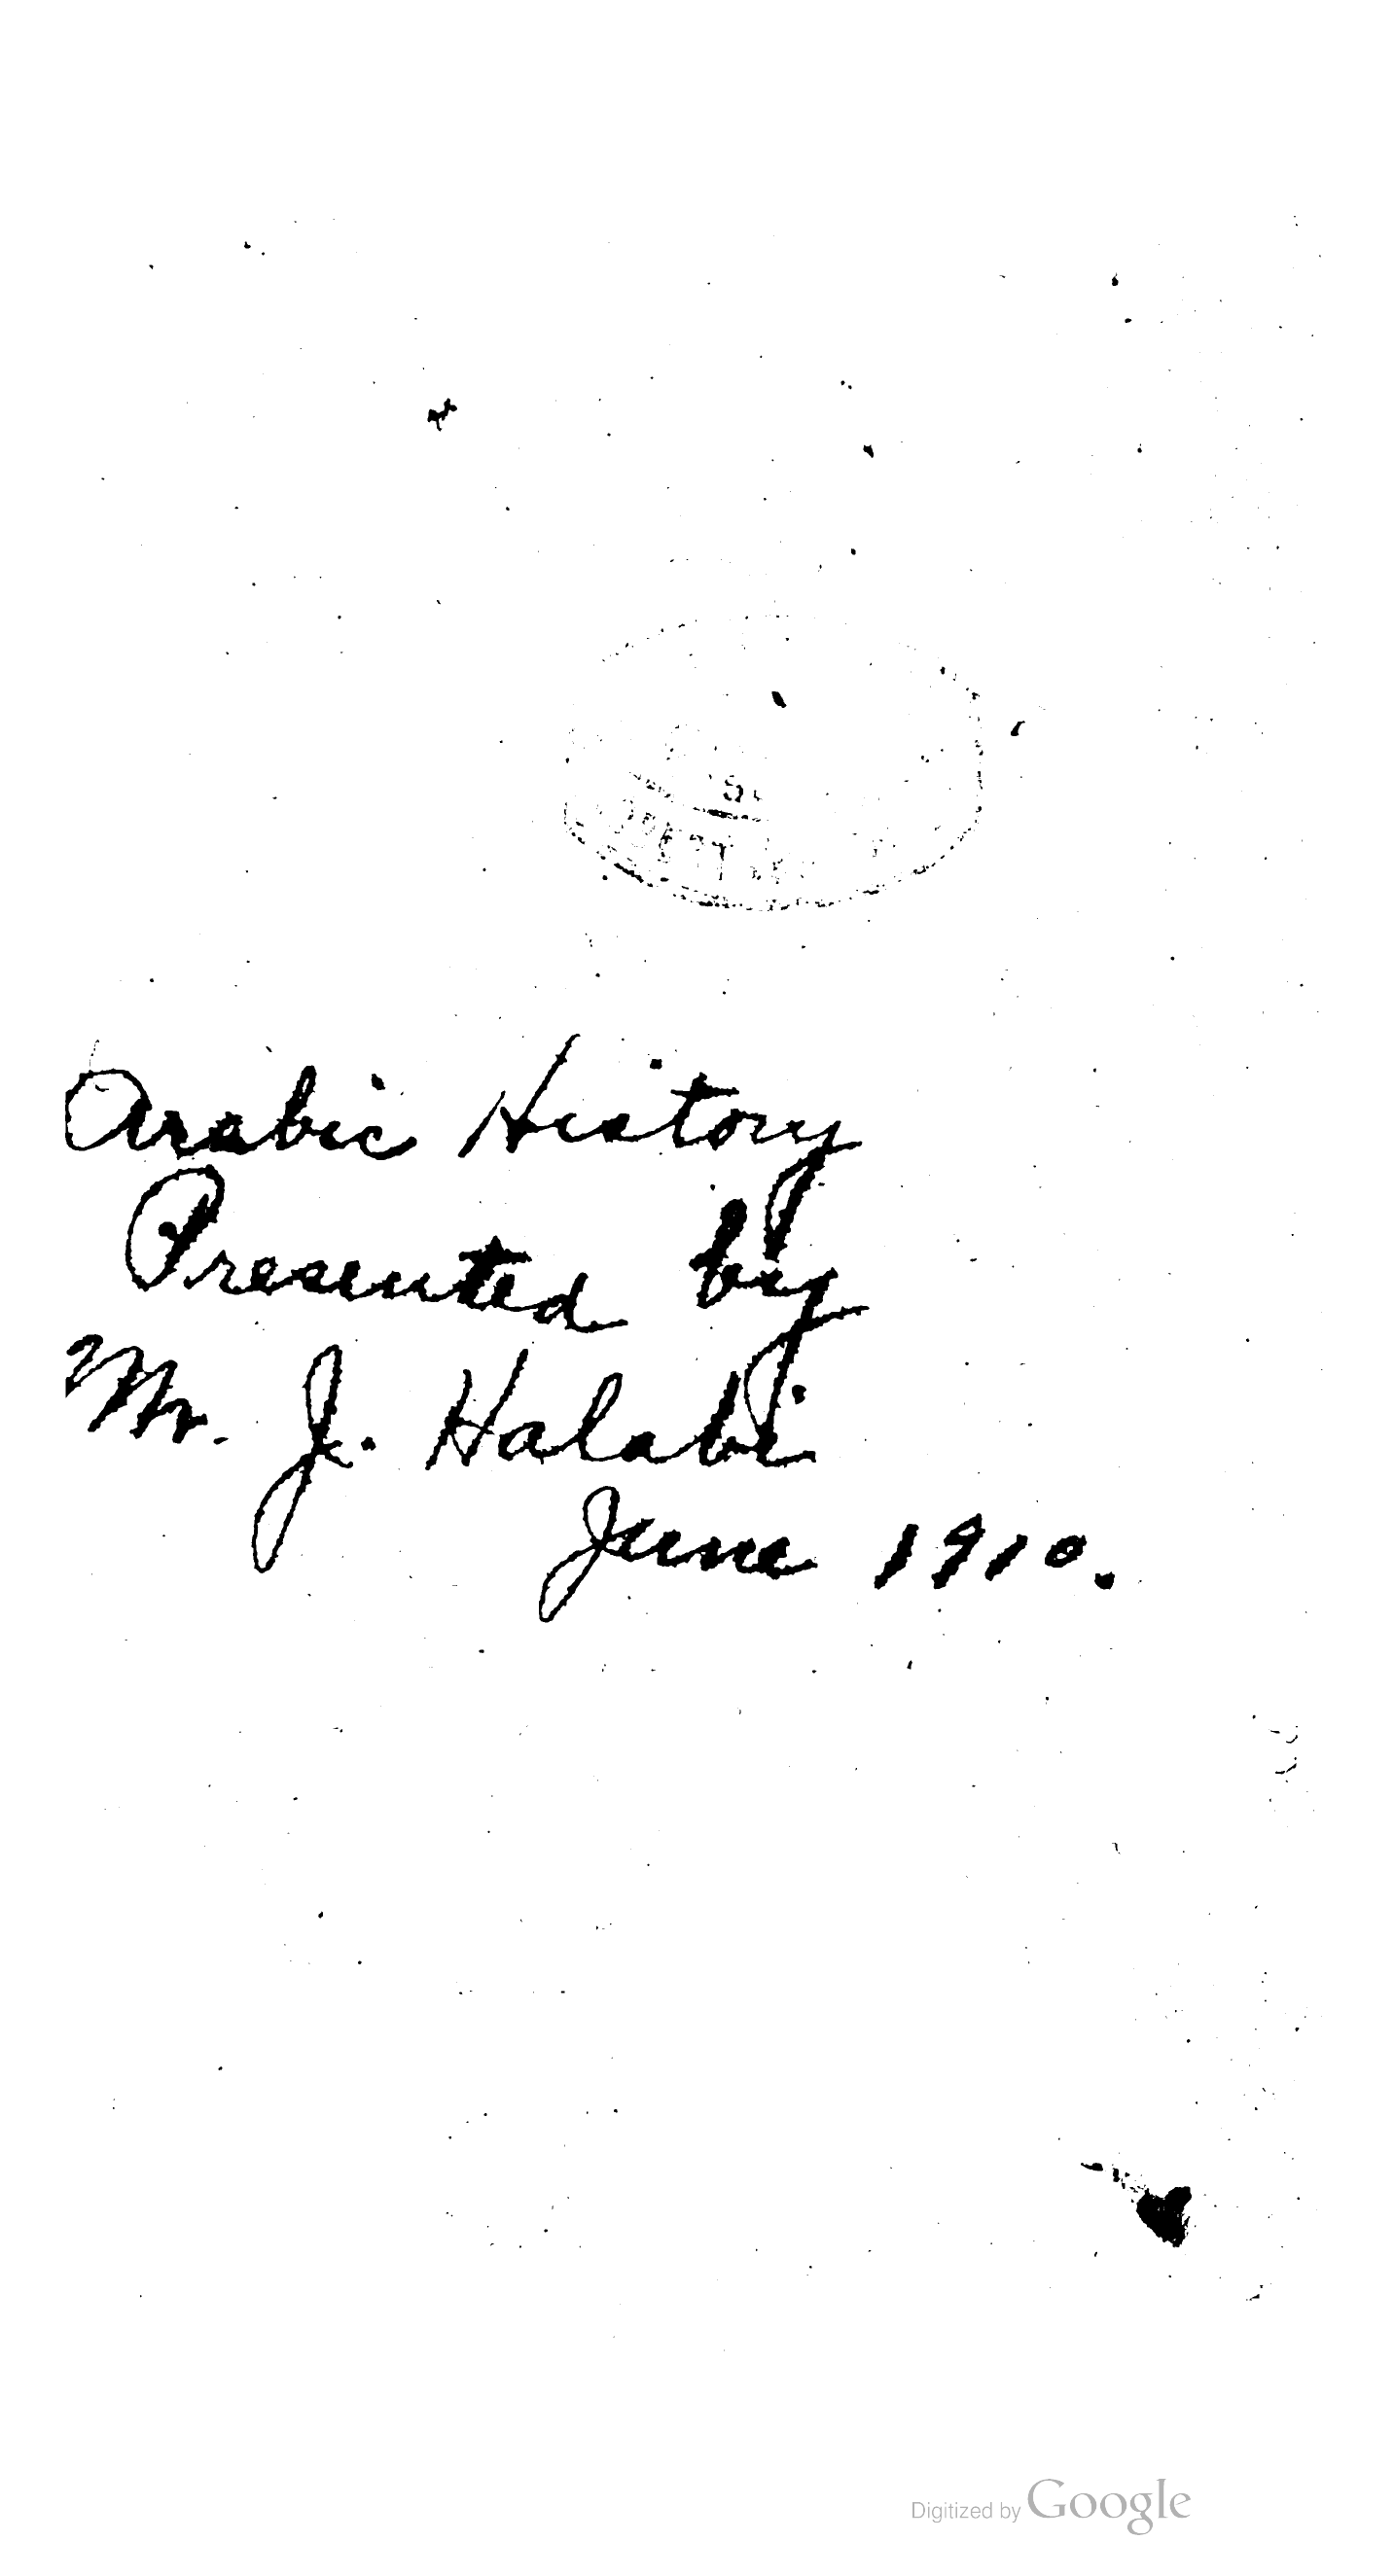 Arabic History
Presented by
Mr. J. Halabi
June 1910.
Digitized by Google